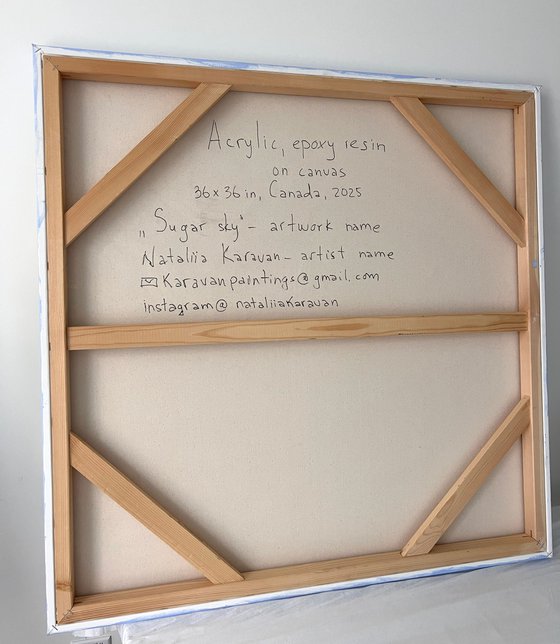 Acrylic, epoxy resin
on canvas
36x36 in, Canada, 2025
„Sugar sky“ - artwork name
Nataliia Karavan - artist name
✉ Karavanpaintings@gmail.com
instagram@ nataliiakaravan